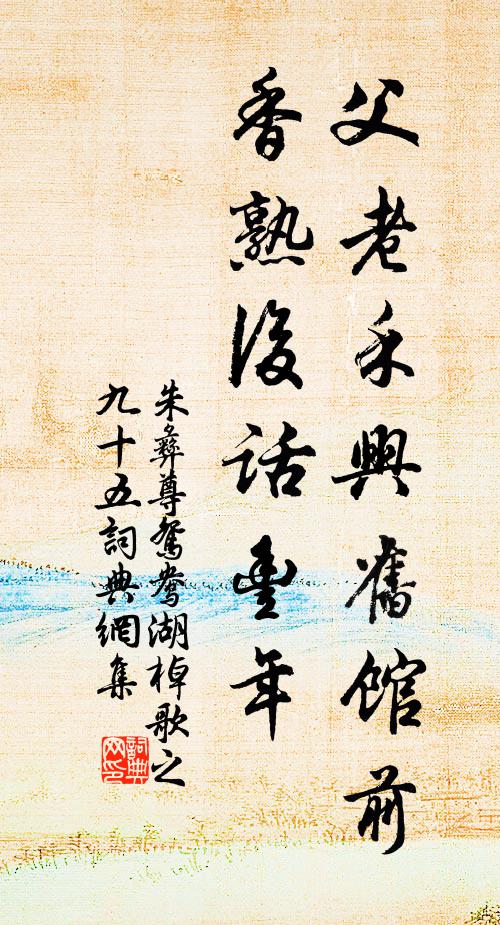 父老禾興舊館前
香熟後話豐年
朱彝尊鴛鴦湖棹歌之
九十五詞典網集
詞典
网印